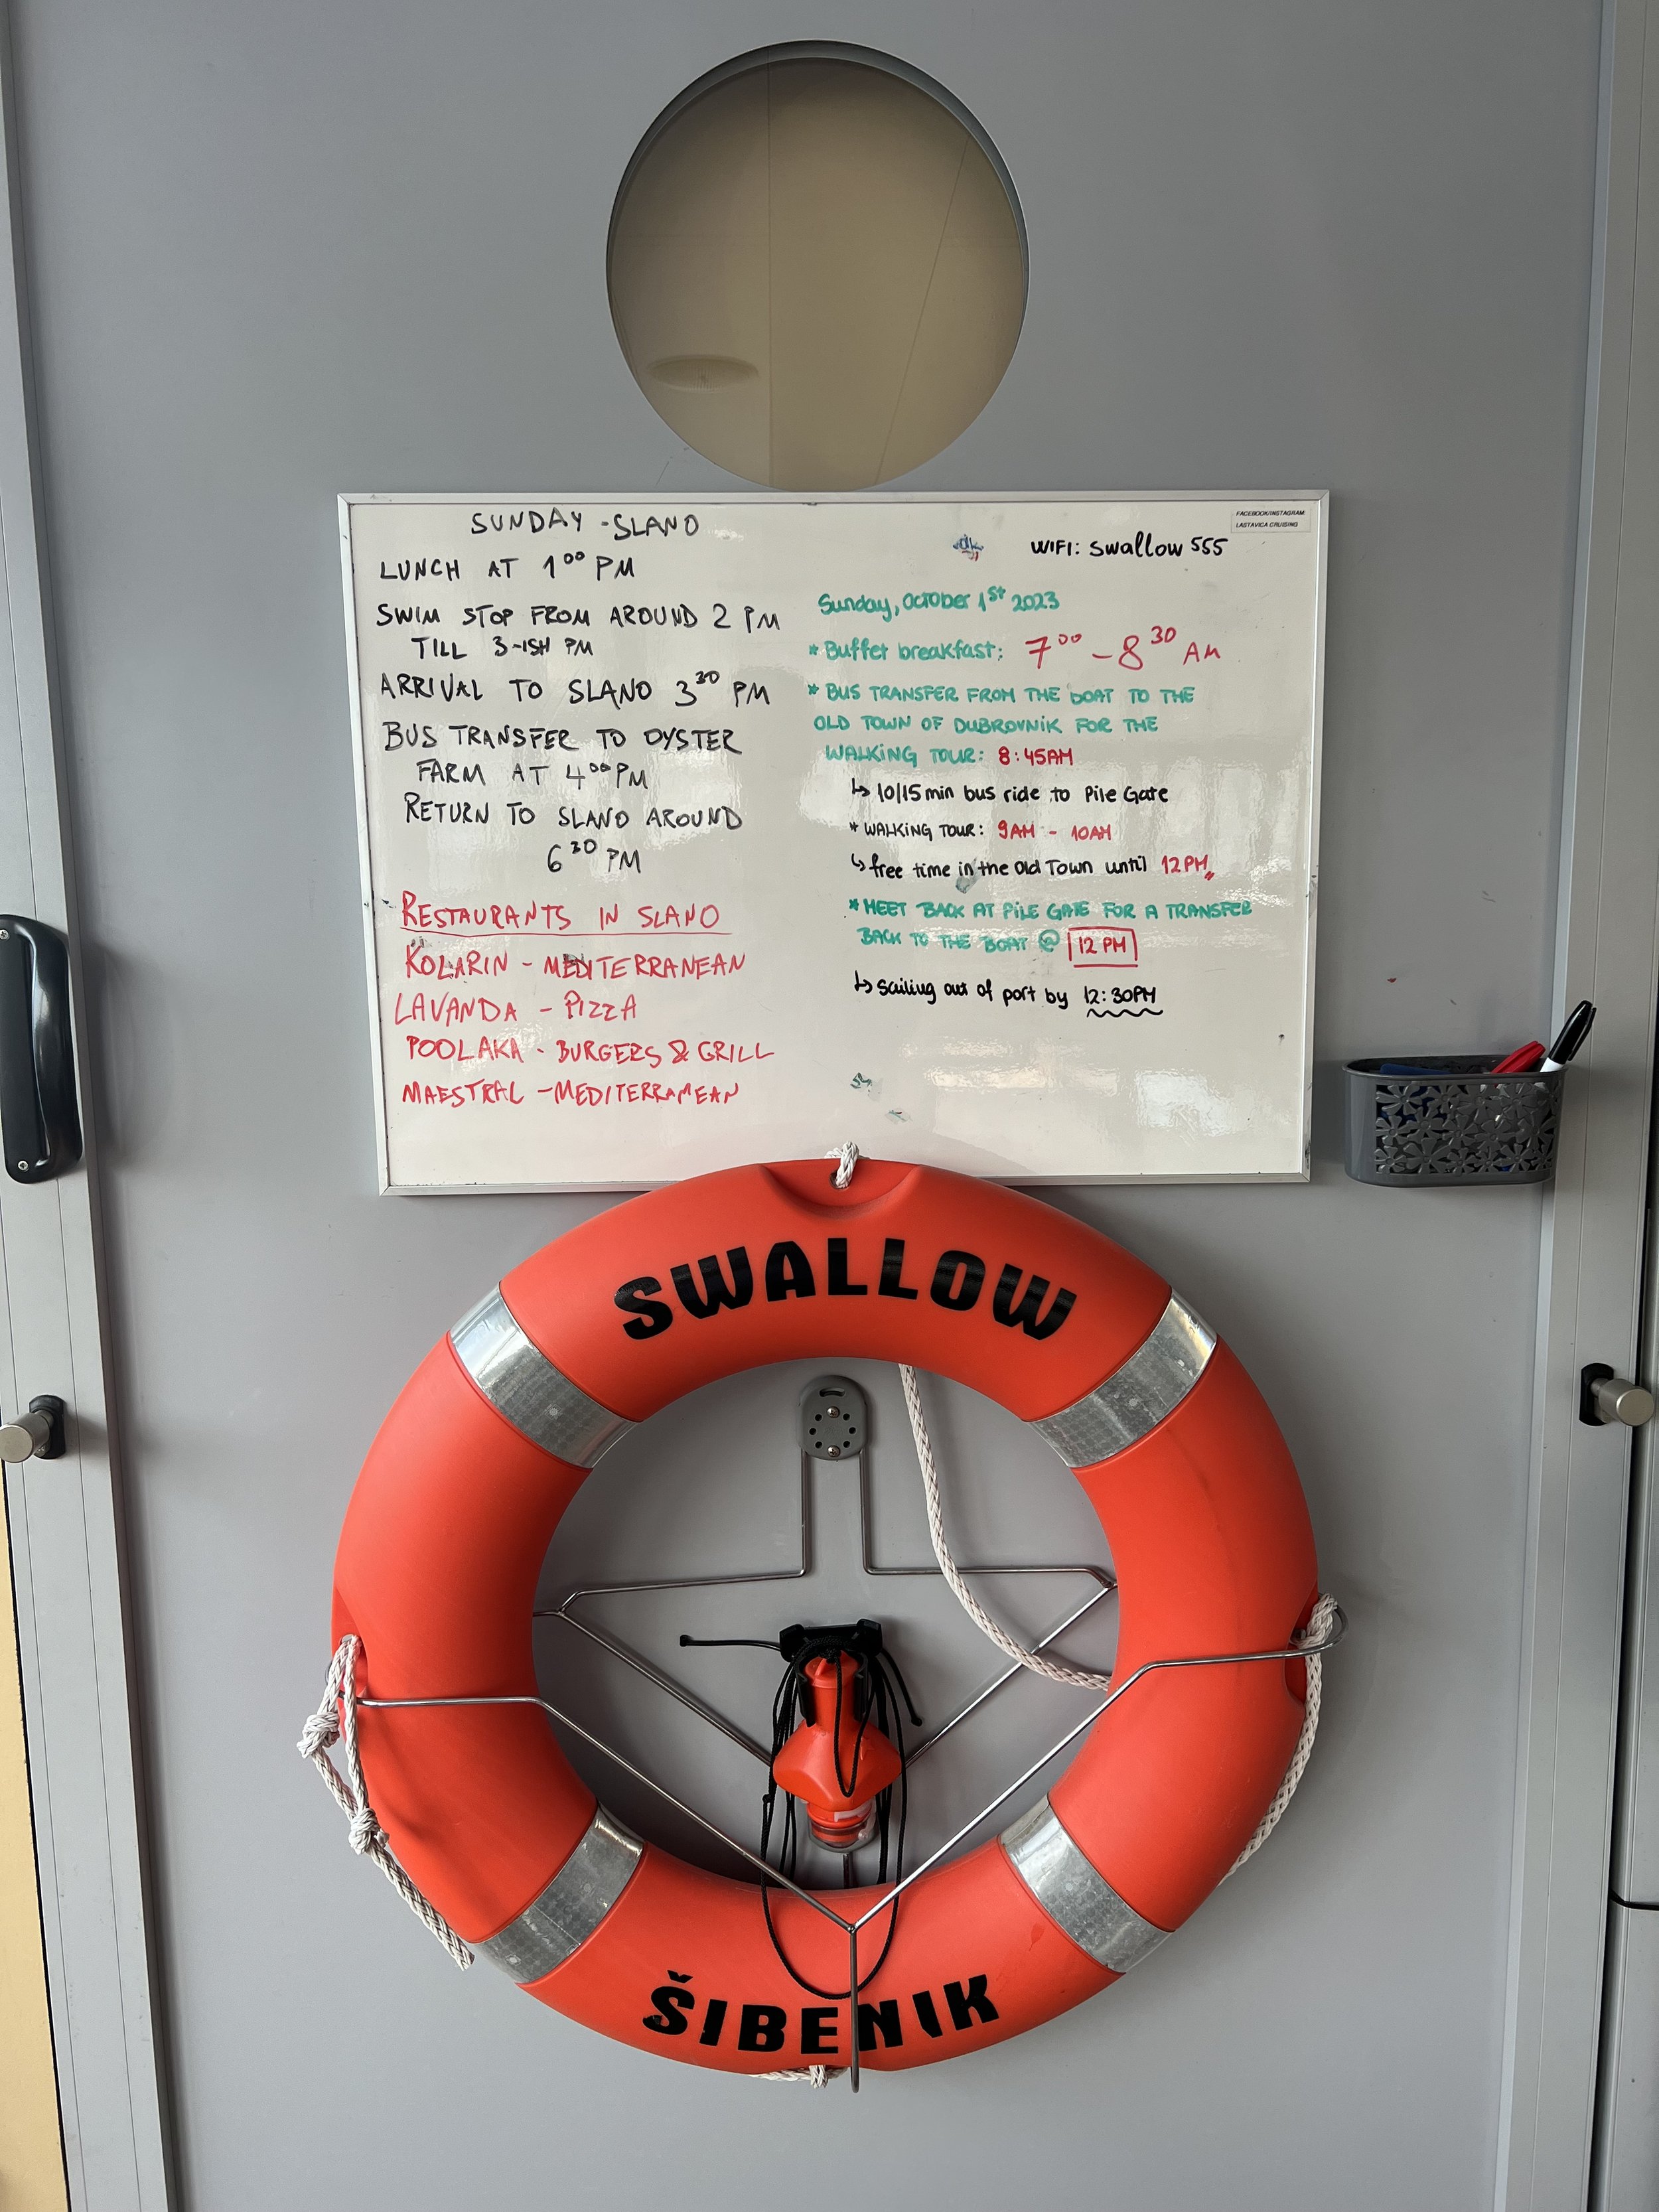 SUNDAY - SLANO
LUNCH AT 1⁰⁰ PM
SWIM STOP FROM AROUND 2 PM
TILL 3-ISH PM
ARRIVAL TO SLANO 3³⁰ PM
BUS TRANSFER TO OYSTER
FARM AT 4⁰⁰ PM
RETURN TO SLANO AROUND
6³⁰ PM
RESTAURANTS IN SLANO
KOLARIN - MEDITERRANEAN
LAVANDA - PIZZA
POOLAKA - BURGERS & GRILL
MAESTRAL - MEDITERRANEAN
FACEBOOK/INSTAGRAM:
LASTAVICA CRUISING
WIFI: swallow 555
Sunday, october 1st 2023
* Buffet breakfast: 7⁰⁰ - 8³⁰ AM
* BUS TRANSFER FROM THE BOAT TO THE
OLD TOWN OF DUBROVNIK FOR THE
WALKING TOUR: 8:45AM
↳ 10/15 min bus ride to Pile Gate
* WALKING TOUR: 9AM - 10AM
↳ free time in the Old Town until 12PM
* MEET BACK AT PILE GATE FOR A TRANSFER
BACK TO THE BOAT @ 12 PM
↳ sailing out of port by 12:30PM
SWALLOW
ŠIBENIK